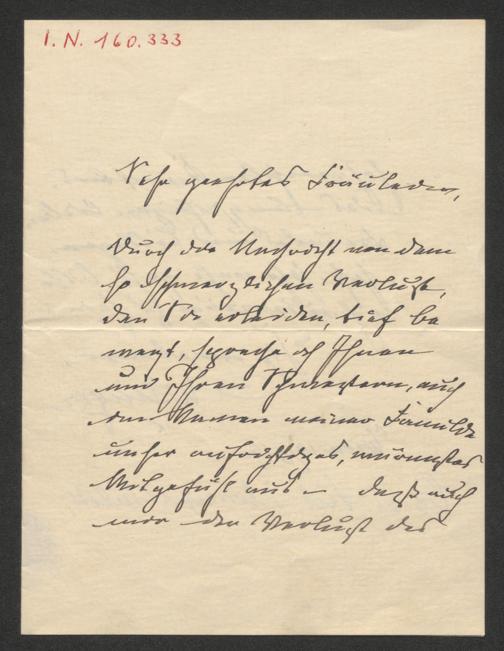 I. N. 160.333
Sehr geehrtes Fräulein,
Durch die Nachricht von dem
so schmerzlichen Verluste,
den Sie erleiden, tief be
wegt, spreche ich Ihnen
und Ihren Schwestern, auch
im Namen meiner Familie
unser aufrichtiges, wärmstes
Mitgefühl aus – daß auch
wir den Verlust des